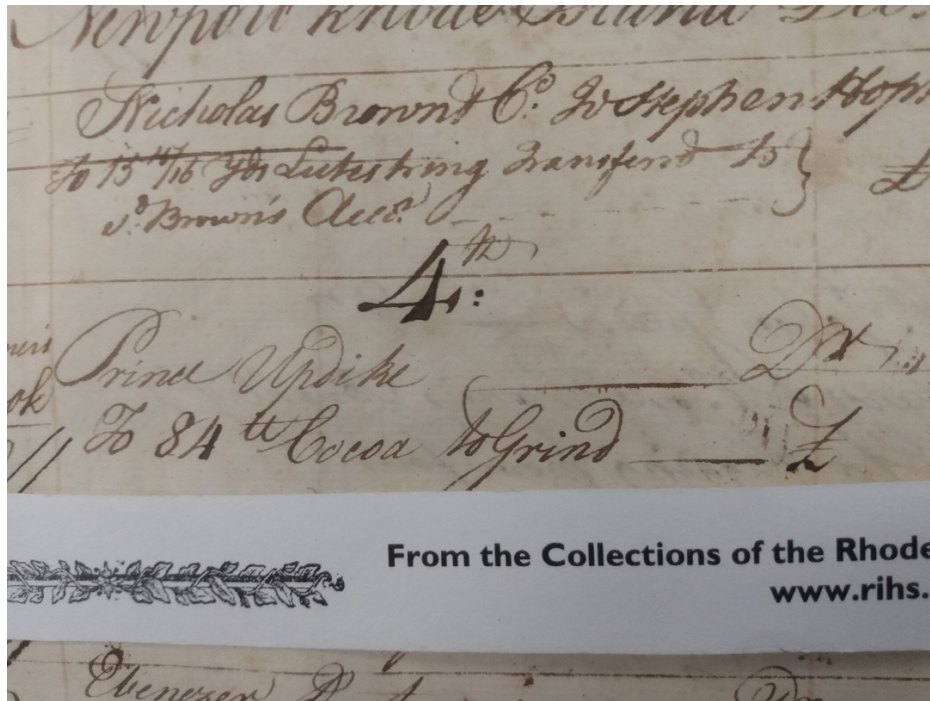 Newport Rhode Island
Nicholas Brown & Co. To Stephen Hop
To 15 11/16 Yds Lutestring Transferrd to
sd. Brown's Acco.
4th:
Prince Updike Dr
To 84 lb Cocoa to Grind £
From the Collections of the Rhode
www.rihs.
Ebenezer